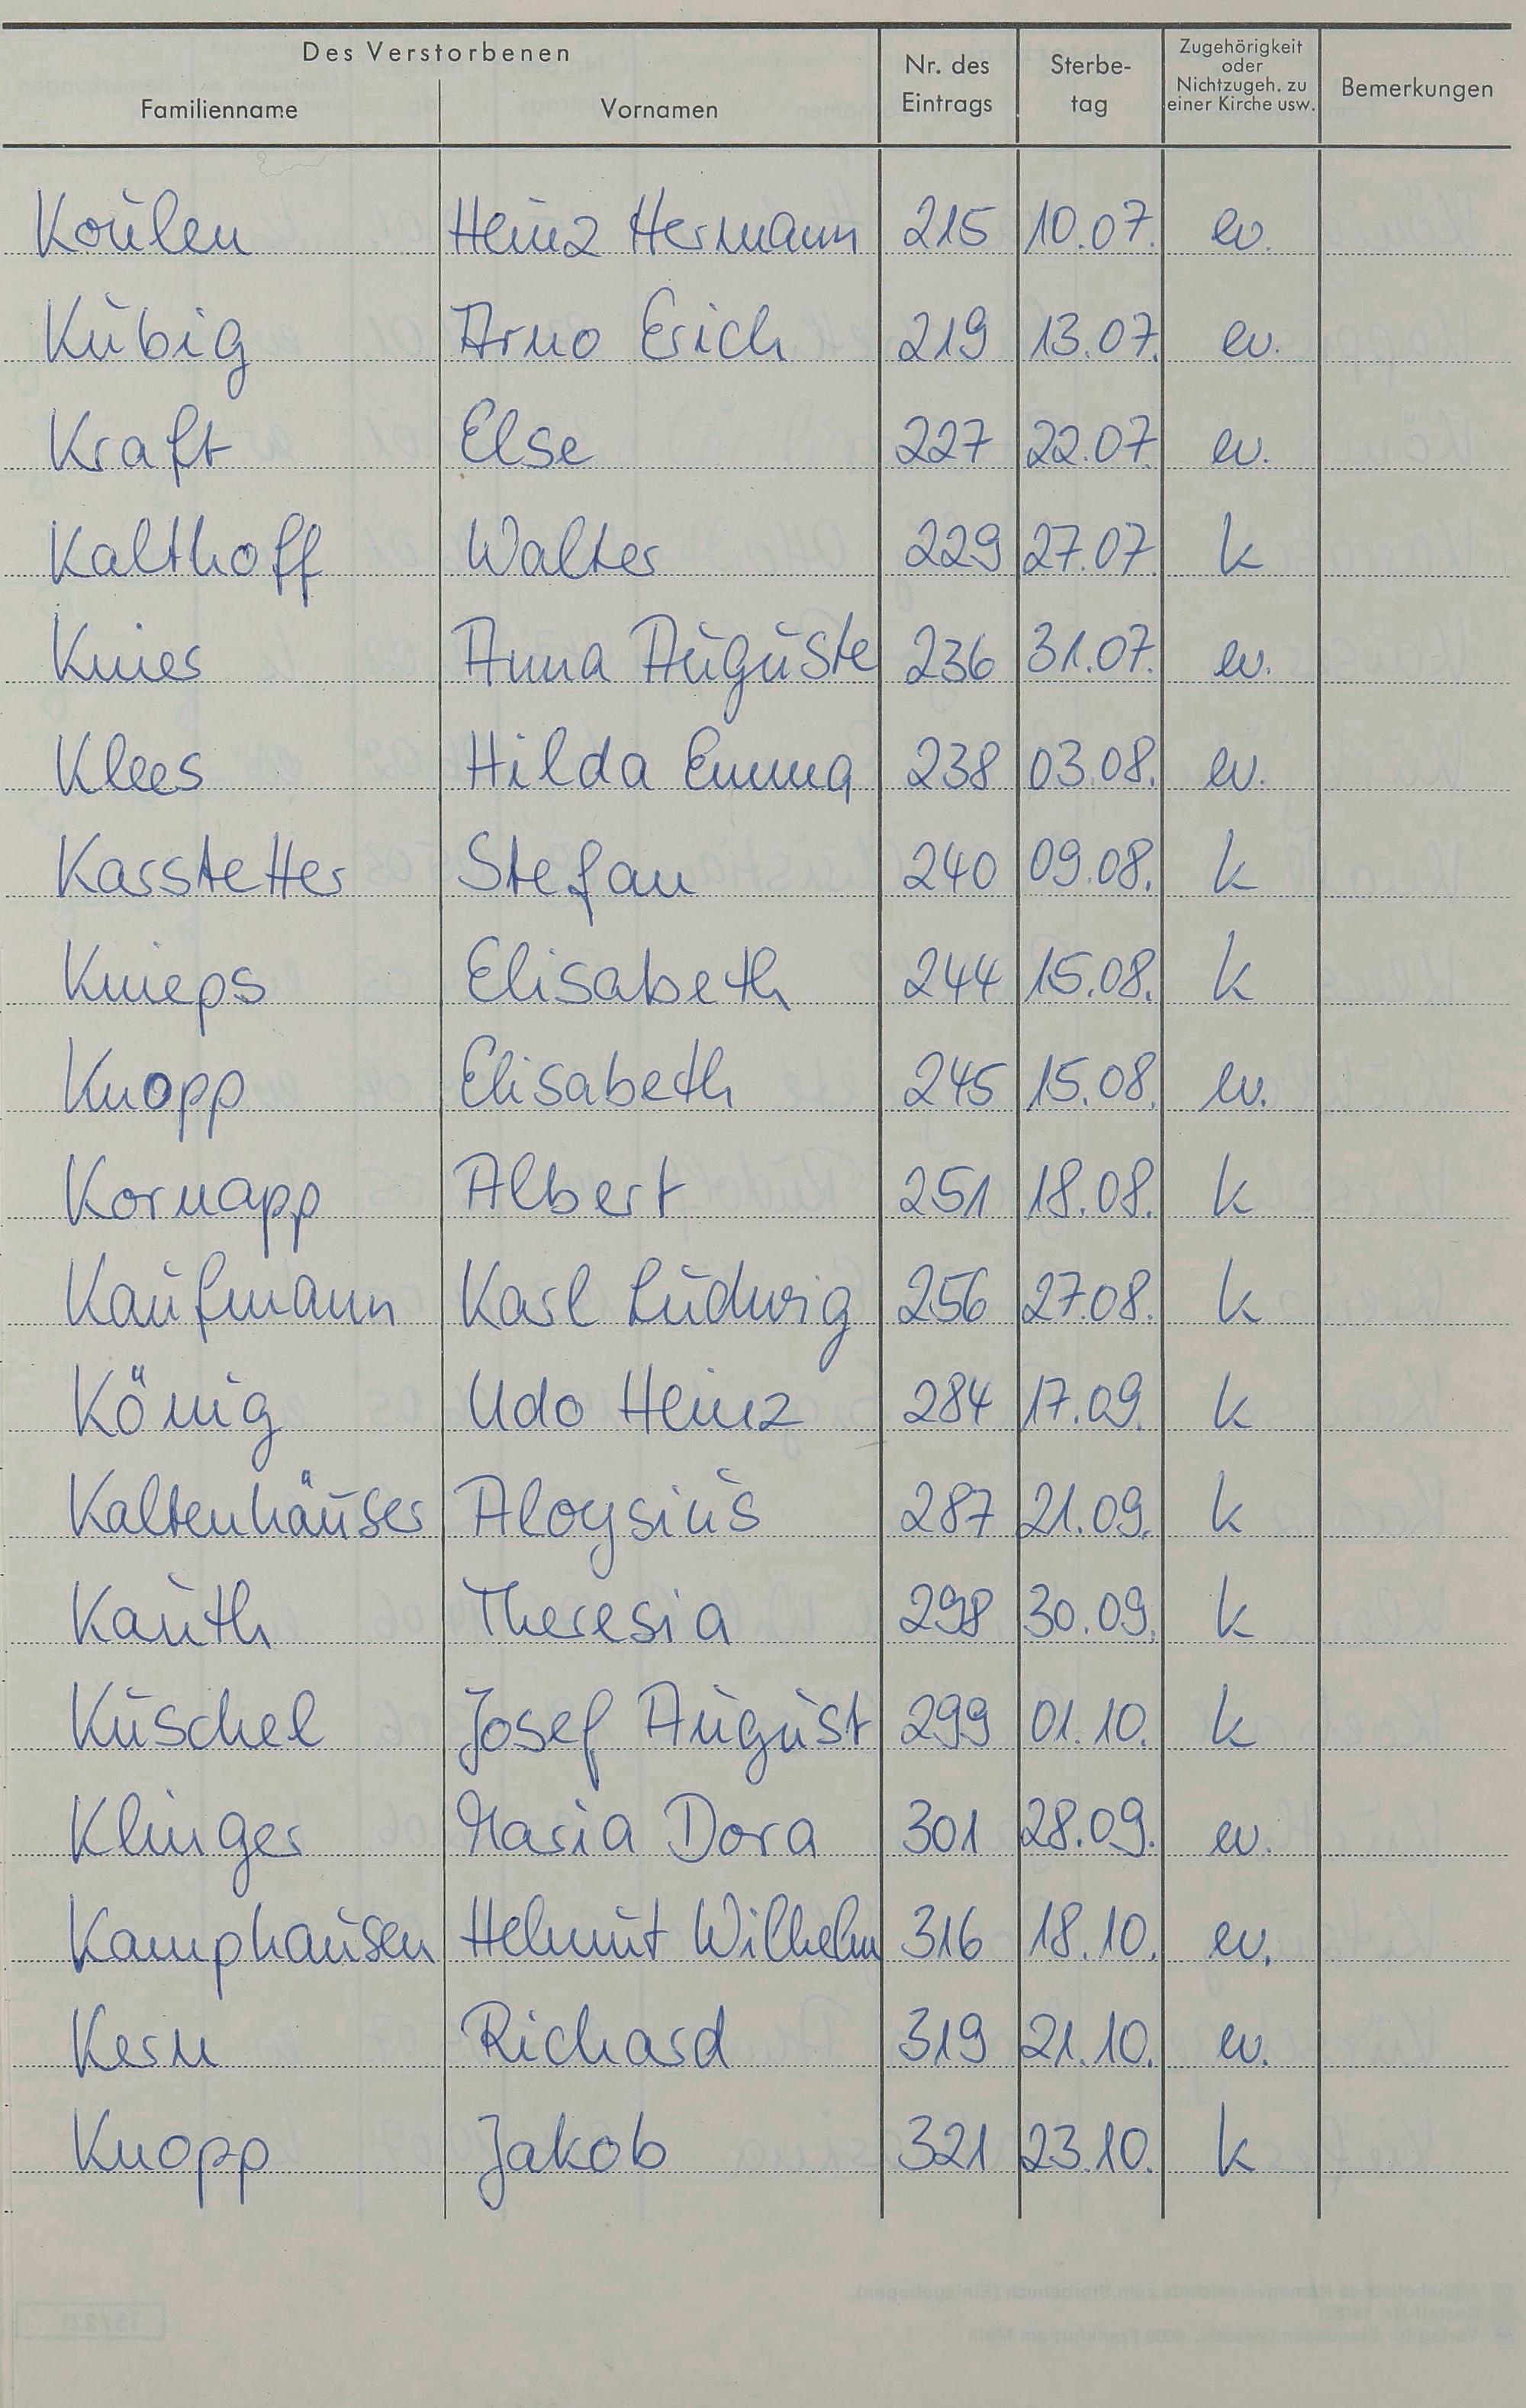 Des Verstorbenen
Familienname Vornamen Nr. des Eintrags Sterbe-tag Zugehörigkeit oder Nichtzugeh. zu einer Kirche usw. Bemerkungen
Koulen Heinz Hermann 215 10.07. ev.
Kubig Arno Erich 219 13.07. ev.
Kraft Else 227 22.07. ev.
Kalthoff Walter 229 27.07. k
Knies Anna Auguste 236 31.07. ev.
Klees Hilda Emma 238 03.08. ev.
Karstetter Stefan 240 09.08. k
Knieps Elisabeth 244 15.08. k
Knopp Elisabeth 245 15.08. ev.
Kornapp Albert 251 18.08. k
Kaufmann Karl Ludwig 256 27.08. k
König Udo Heinz 284 17.09. k
Kaltenhäuser Aloysius 287 21.09. k
Kauth Theresia 298 30.09. k
Kuschel Josef August 299 01.10. k
Klinger Maria Dora 301 28.09. ev.
Kamphausen Helmut Wilhelm 316 18.10. ev.
Kern Richard 319 21.10. ev.
Knopp Jakob 321 23.10. k